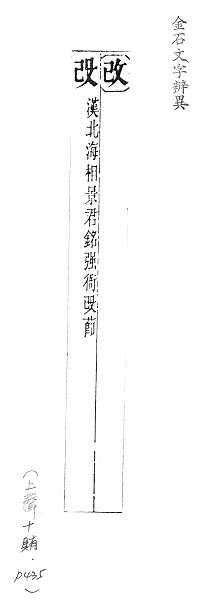 金石文字辨異
改
攺 漢北海相景君銘强衙攺莭
(上聲十賄.P435)